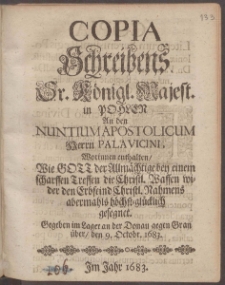 COPIA
Schreibens
Sr. Königl. Majest.
in POHLEN
An den
NUNTIUM APOSTOLICUM
Herrn PALAVICINI,
Worinnen enthalten/
Wie GOTT der Allmächtige bey einem
scharffen Treffen die Christl. Waffen wi-
der den Erbfeind Christl. Nahmens
abermahls höchst-glücklich
gesegnet.
Gegeben im Lager an der Donau gegen Gran
über/ den 9. Octobr. 1683.
Im Jahr 1683.